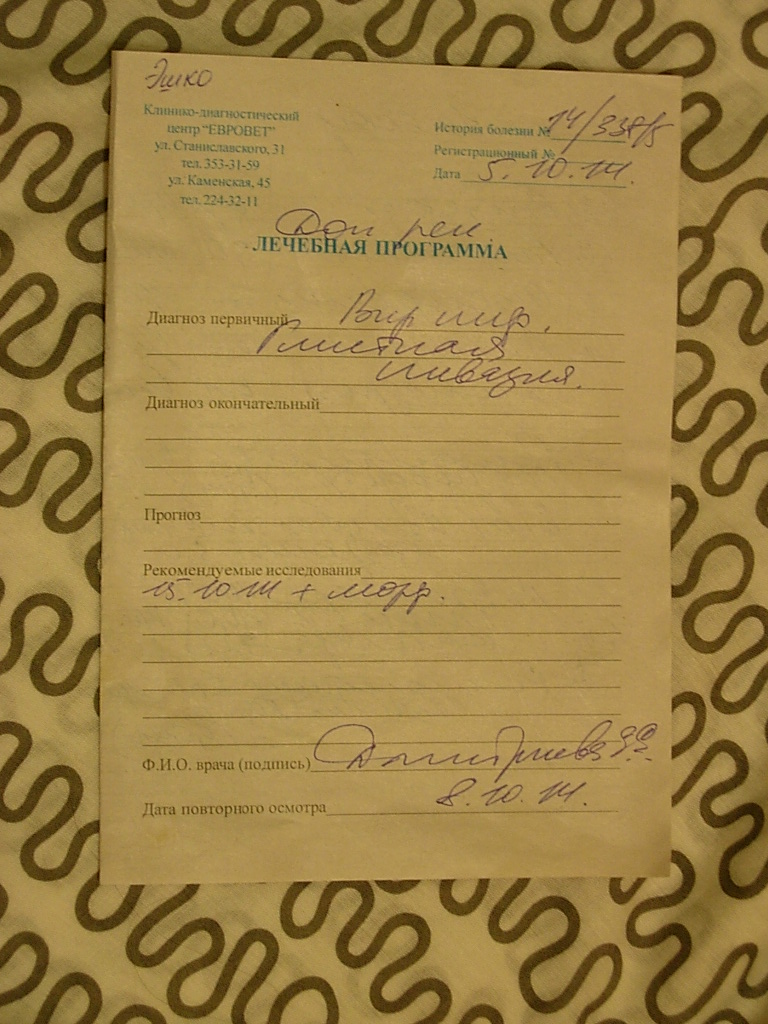 Эшко
Клинико-диагностический
центр "ЕВРОВЕТ"
ул. Станиславского, 31
тел. 353-31-59
ул. Каменская, 45
тел. 224-32-11
История болезни № 14/338/5
Регистрационный №
Дата 5.10.14.
Доп рек.
ЛЕЧЕБНАЯ ПРОГРАММА
Диагноз первичный Вир инф.
Глистная
инвазия.
Диагноз окончательный
Прогноз
Рекомендуемые исследования
15.10 14 + морф.
Ф.И.О. врача (подпись) Дмитриева
Дата повторного осмотра 8.10.14.